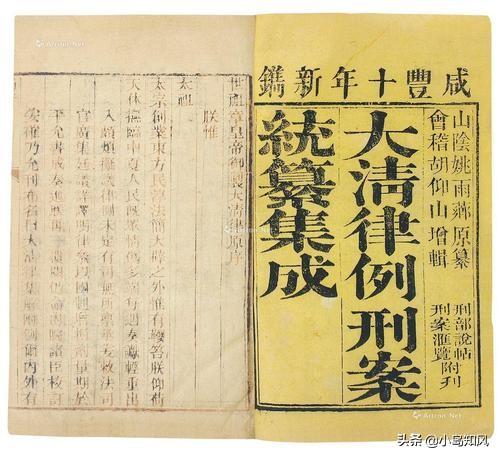 咸豐十年新鐫
山陰姚雨薌原纂
會稽胡仰山增輯
刑部說帖
刑案滙覽附刊
大清律例刑案
統纂集成
世祖章皇帝御製大清律原序
朕惟
太祖
太宗創業東方民淳法簡大辟之外惟有鞭笞朕仰荷
天休撫臨中夏人民既眾情偽多端每遇奏讞輕重出
入頗煩擬議律例未定有司無所稟承爰敕法司
官廣集廷議詳譯明律參以國制增損劑量期於
平允書成奏進
諸臣校訂
妥確乃允刊布名曰大清律集解附例爾內外有
Artron.Net
Artron.Net
头条 @小鸟知风